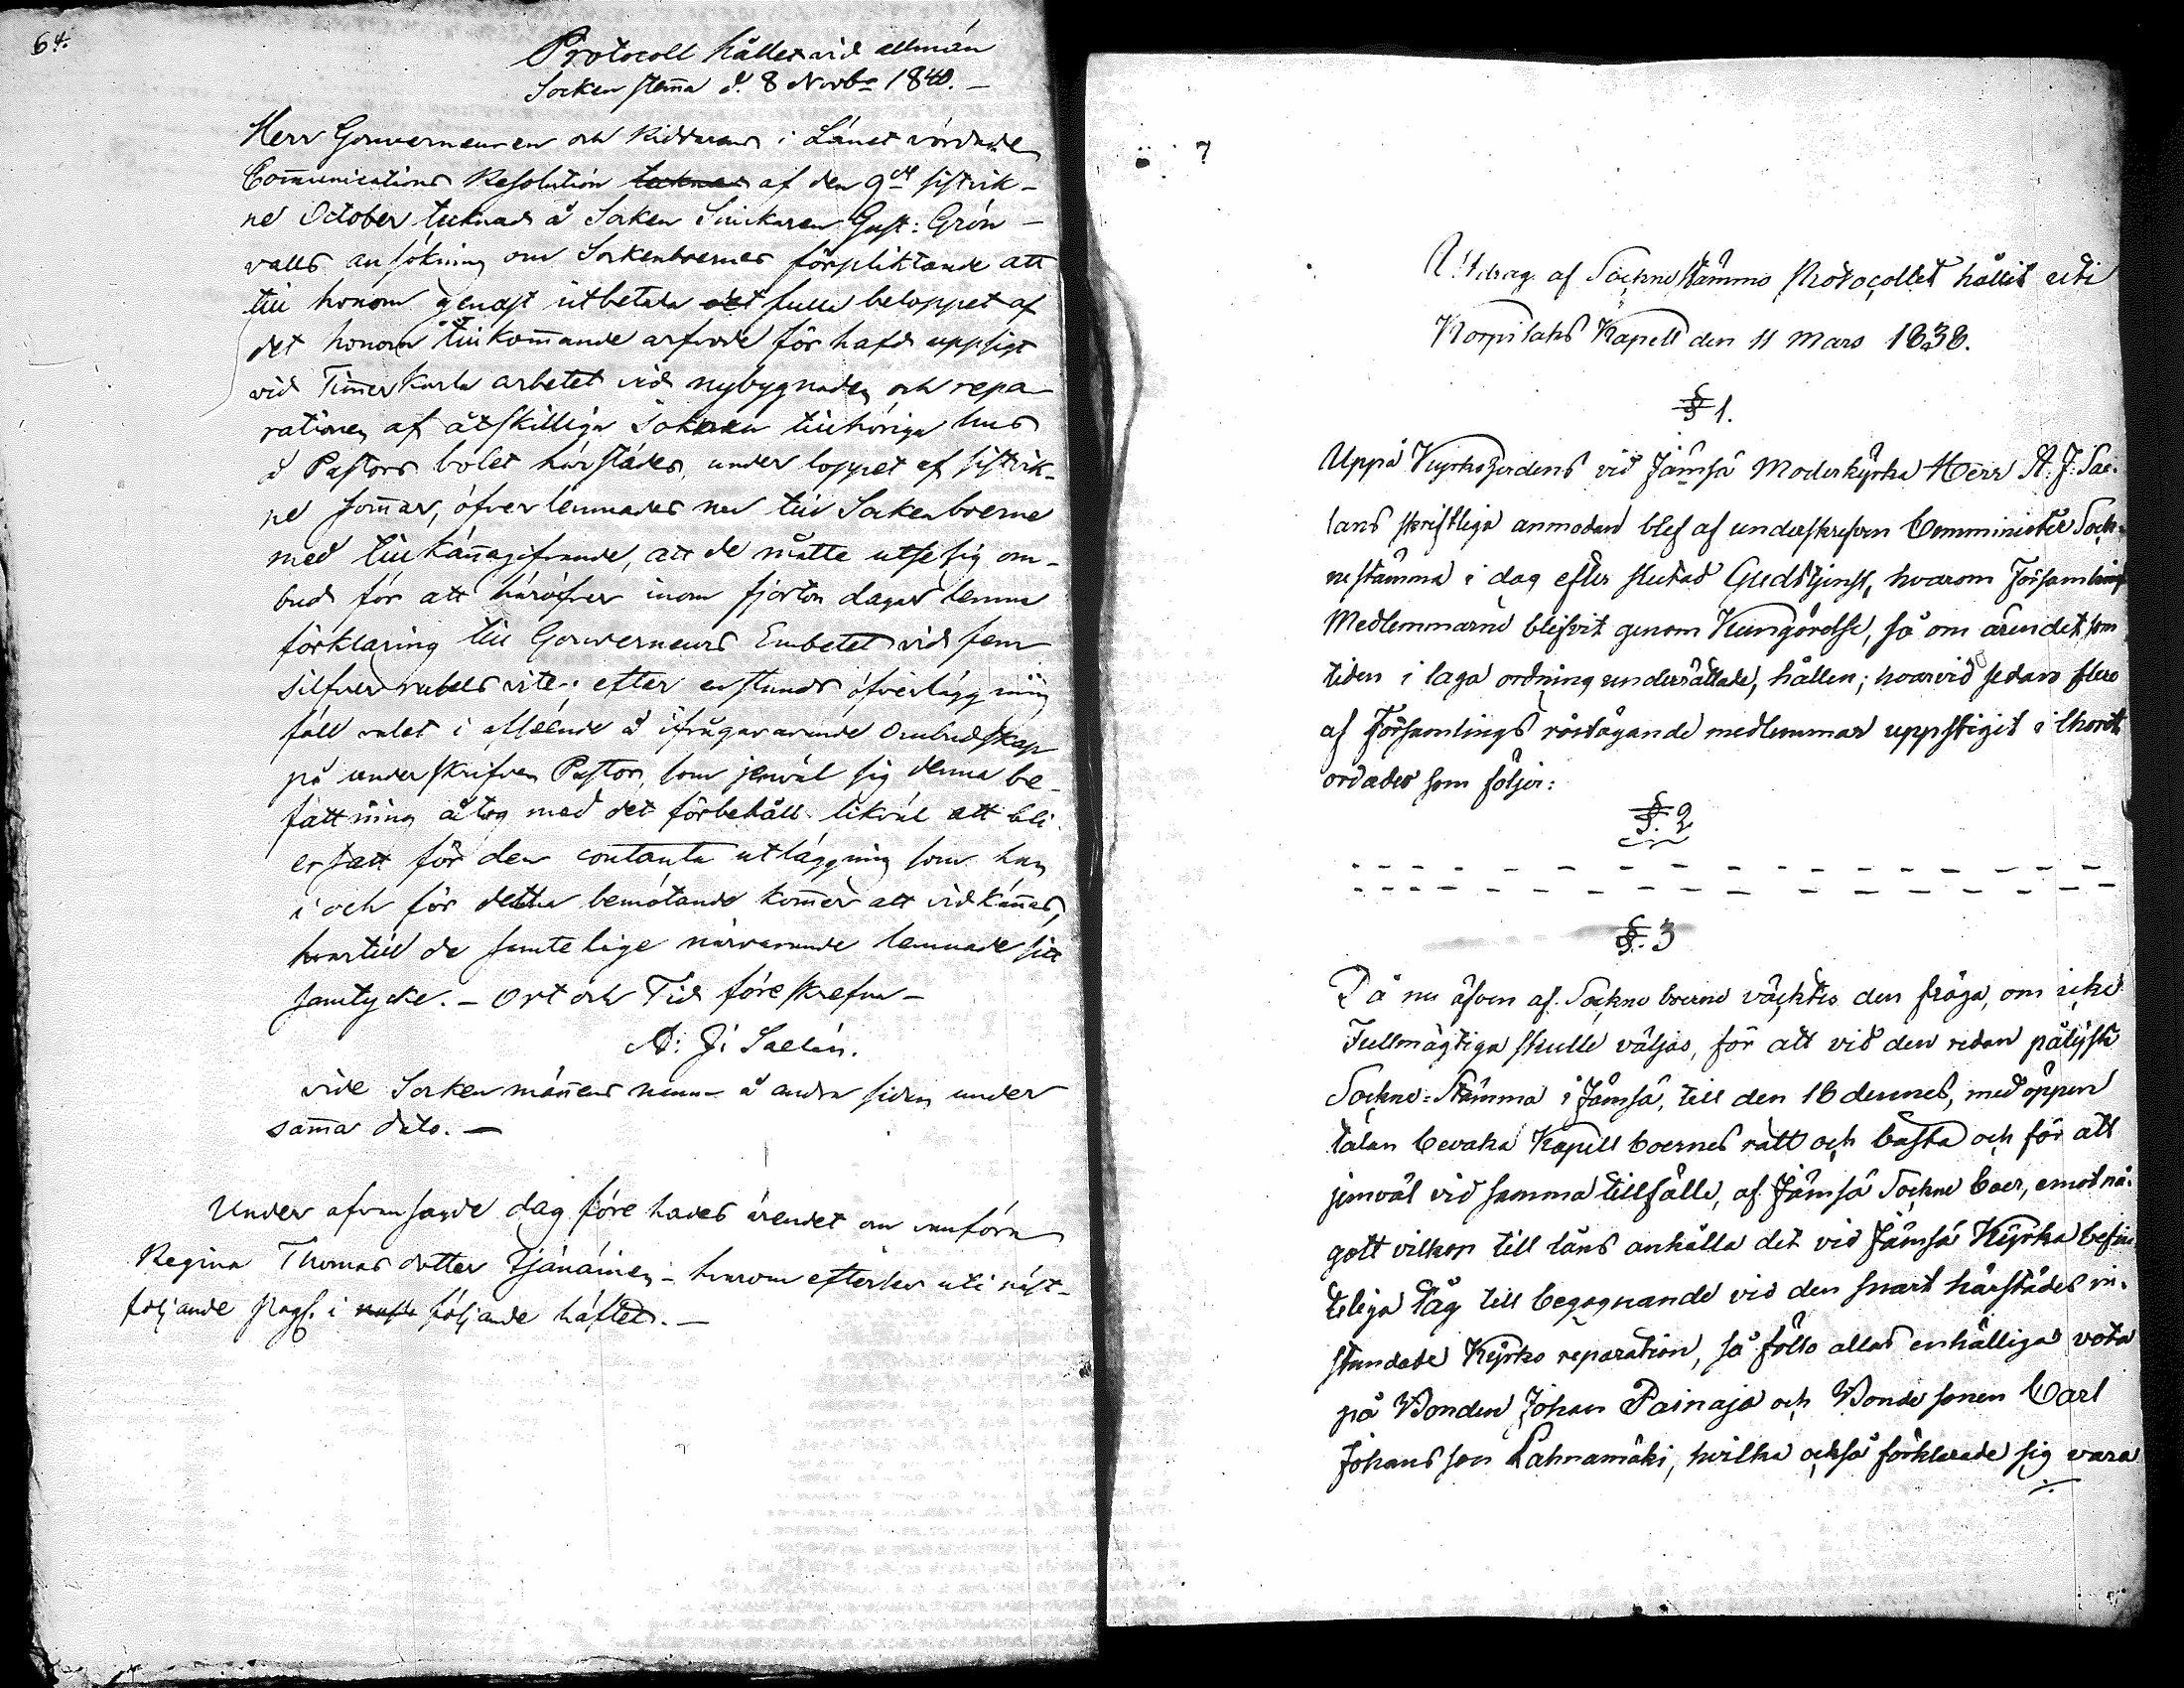 64.
Protocoll hållet vid allmän
Sockenstem̃a d. 8 Novbr 1840. –
Herr Gouverneuren och Riddarens i Länet vördade
Com̃unications Resolution tecknad af den 9de sistvik-
ne October tecknad å Socken Snickaren Gust: Grön-
valls ansökning om Sockenboernes förpliktande att
till honom genast utbetala det fulla beloppet af
det honom tillkom̃ande arfvode för hafd uppsigt
vid Tim̃erkarls arbetet vid nybygnaden och repa-
rationen af åtskilliga Socknen tillhöriga hus
å Pastors bolet härstädes, under loppet af sistvik-
ne som̃ar, öfverlemnades nu till Sockenboerne
med tillkän̄agifvande, att de måtte utse sig om-
bud för att häröfver inom fjorton dagar lemna
förklaring till Gouverneurs Embetet vid fem
silfver rubels vite; efter en stunds öfverläggning
föll valet i afseende å ifrågavarande Ombudskap
på underskrifven Pastor, som jemväl sig denna be-
fattning åtog med det förbehåll likväl att bli
ersatt för den contanta utläggning som han
i och för detta bemötande kom̃er att vidkän̄as,
hvartill de samtelige närvarande lemnade sitt
samtycke. – Ort och Tid föreskrefvne –
A: J: Sallén.
vide Sockenmän̄ens namn å andra sidan under
sam̃a dato. –
Under ofvansagde dag förehades ärendet om vanföra
Regina Thomas dotter Tjänäinen – hvarom efterses uti näst-
följande pag. i nästa följande häftet. –
7
Utdrag af Sockne Stämmo Protocollet hållit uti
Korpilaks Kapell den 11 Mars 1838.
§ 1.
Uppå Kyrkoherdens vid Jämsä Moderkyrka Herr A. J. Sac-
lans skriftliga anmodan blef af underskrefven Comminister Sock-
nestämma i dag efter slutad Gudstjenst, hvarom Församlings
Medlemmarne blifvit genom Kungörelse, så om ärendet som
tiden i laga ordning underrättade, hållen; hvarvid sedan flere
af Församlings röstägande medlemmar uppstigit i Choret
ordades som följer:
§. 2
§. 3
Då nu äfven af Sockne boerne väcktes den fråga, om icke
Fullmägtiga skulle väljas, för att vid den redan pålyste
Sockne-Stämma i Jämsä, till den 18 dennes, med öppen
talan bevaka Kapell boernes rätt och bästa och för att
jemväl vid samma tillfälle, af Jämsä Sockne boer, emot nå-
gott vilkor till låns anhålla det vid Jämsä Kyrka befin
teliga tåg till begagnande vid den snart härstädes in-
stundade Kyrko reparation, så föllo allas enhälliga vota
på Bonden Johan Painaja och Bonde sonen Carl
Johansson Lahnamäki, hvilka också förklarade sig vara